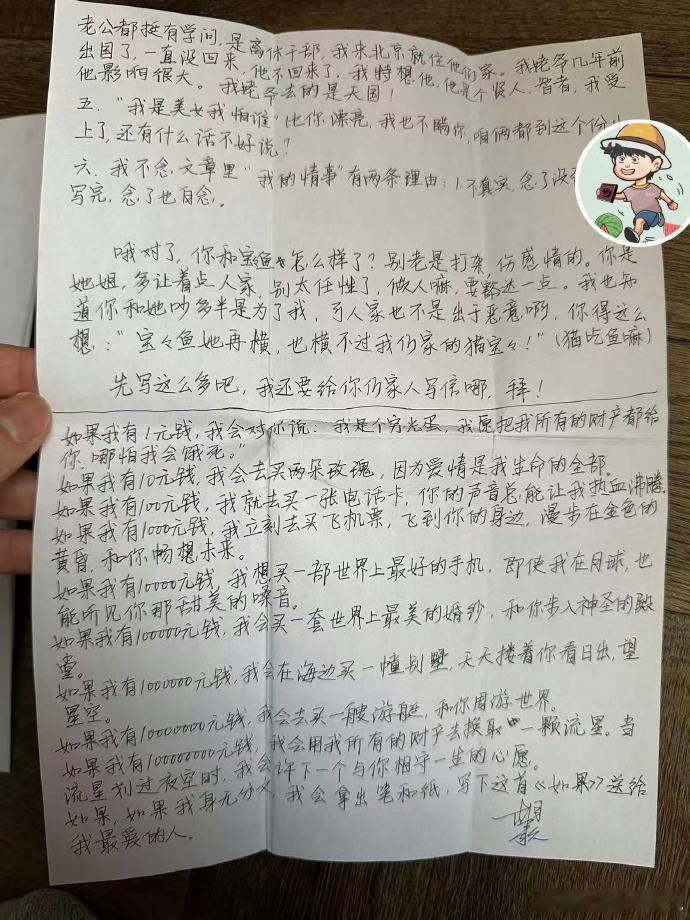 老公都挺有学问,是离休干部,我来北京就住他们家。我姥爷几年前
出国了,一直没回来,他不回来了,我特想他,他是个好人,智者,我受
他影响很大。我姥爷去的是天国!
五.“我是美女我怕谁”比你漂亮,我也不瞒你,咱俩都到这个份儿
上了,还有什么话不好说?
六.我不念,文章里“我的情事”有两条理由:1.不真实,念了没
写完,念了也白念。
哦对了,你和宝鱼怎么样了?别老是打架,伤感情的。你是
她姐,多让着点人家,别太任性了,做人嘛,要豁达一点。我也知
道你和她吵多半是为了我,可人家也不是出于恶意啊,你得这么
想:“宝々鱼她再横,也横不过我们家的猫宝々!”(猫吃鱼嘛)
先写这么多吧,我还要给你们家人写信哪,拜!
如果我有1元钱,我会对你说:我是个穷光蛋,我愿把我所有的财产都给
你,哪怕我会饿死。”
如果我有10元钱,我会去买两朵玫瑰,因为爱情是我生命的全部。
如果我有100元钱,我就去买一张电话卡,你的声音总能让我热血沸腾.
如果我有1000元钱,我立刻去买飞机票,飞到你的身边,漫步在金色的
黄昏,和你畅想未来。
如果我有10000元钱,我想买一部世界上最好的手机,即使我在月球,也
能听见你那甜美的嗓音。
如果我有100000元钱,我会买一套世界上最美的婚纱,和你步入神圣的殿
堂。
如果我有1000000元钱,我会在海边买一幢别墅,天天搂着你看日出,望
星空。
如果我有10000000元钱,我会去买一艘游艇,和你周游世界。
如果我有100000000元钱,我会用我所有的财产去换取一颗流星。当
流星划过夜空时,我会许下一个与你相守一生的心愿。
如果,如果我身无分文,我会拿出笔和纸,写下这首《如果》送给
我最爱的人。